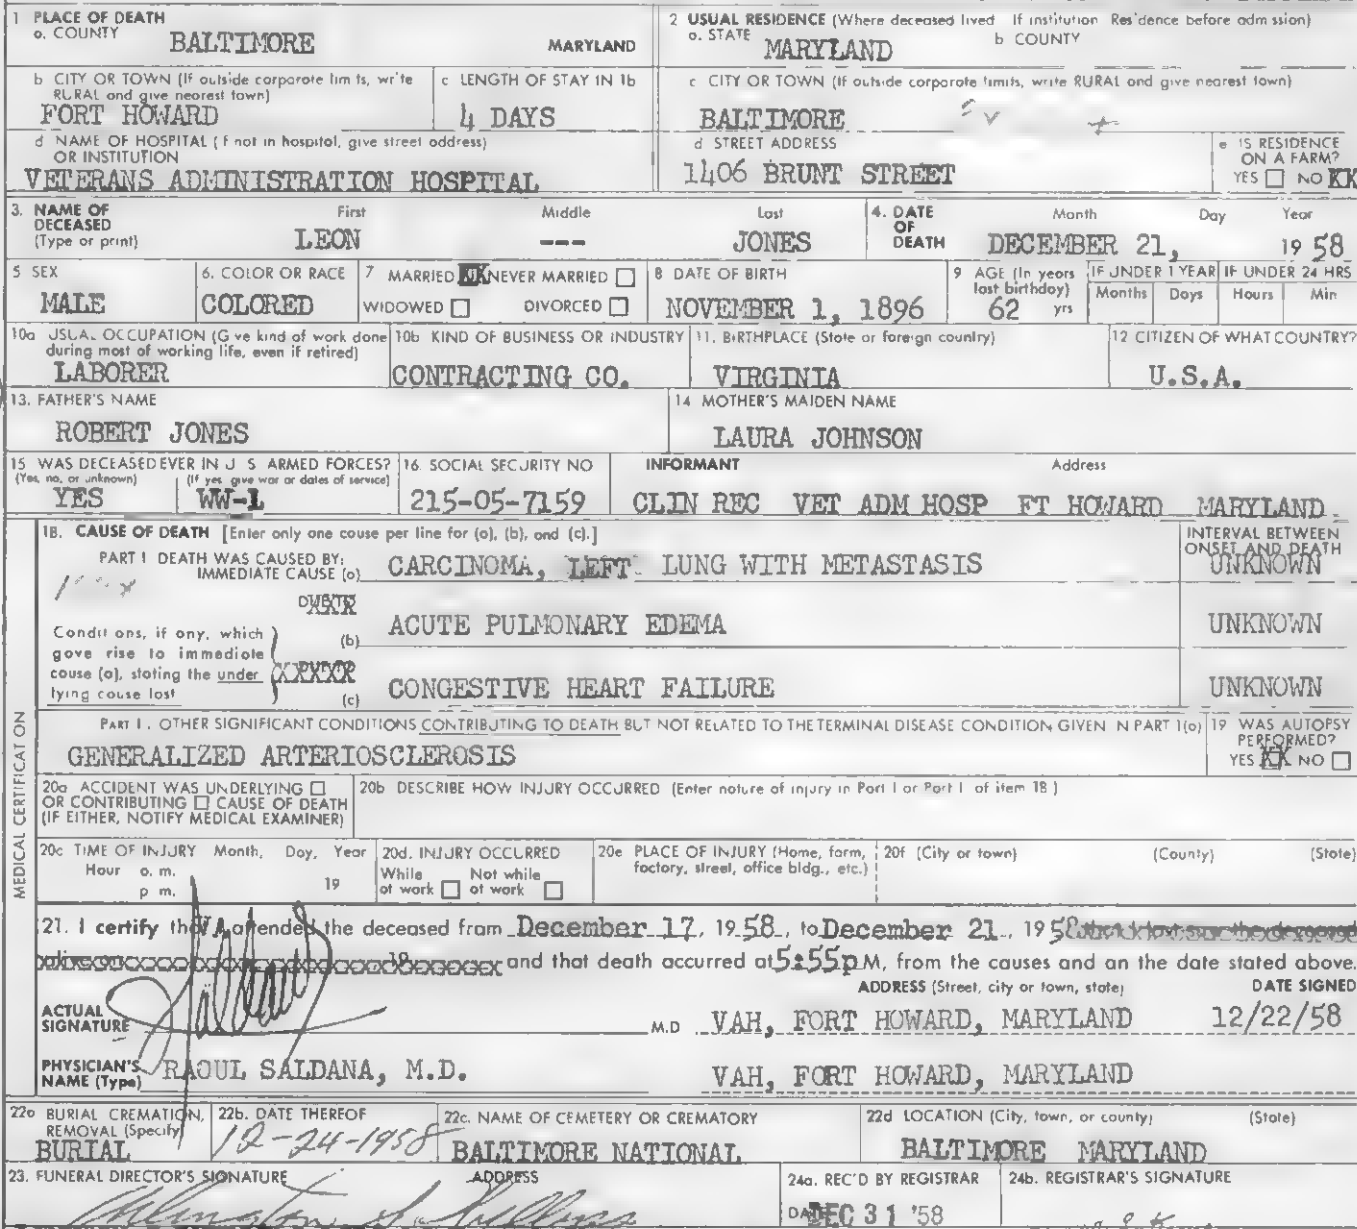 1 PLACE OF DEATH
a. COUNTY BALTIMORE MARYLAND
2 USUAL RESIDENCE (Where deceased lived If institution Res'dence before adm ssion)
a. STATE MARYLAND b COUNTY
b CITY OR TOWN (If outside corporate lim ts, wr'te RURAL and give nearest town)
FORT HOWARD
c LENGTH OF STAY IN 1b
4 DAYS
c CITY OR TOWN (If outside corporate limits, write RURAL and give nearest town)
BALTIMORE
d NAME OF HOSPITAL ( f not in hospital, give street address)
OR INSTITUTION
VETERANS ADMINISTRATION HOSPITAL
d STREET ADDRESS
1406 BRUNT STREET
e IS RESIDENCE
ON A FARM?
YES NO XX
3. NAME OF
DECEASED
(Type or print)
First Middle Last
LEON --- JONES
4. DATE
OF
DEATH
Month Day Year
DECEMBER 21, 19 58
5 SEX
MALE
6. COLOR OR RACE
COLORED
7 MARRIED XX NEVER MARRIED
WIDOWED DIVORCED
8 DATE OF BIRTH
NOVEMBER 1, 1896
9 AGE (In years
last birthday)
62 yrs
IF UNDER 1 YEAR IF UNDER 24 HRS
Months Days Hours Min
10a USUAL OCCUPATION (G ve kind of work done
during most of working life, even if retired)
LABORER
10b KIND OF BUSINESS OR INDUSTRY
CONTRACTING CO.
11. BIRTHPLACE (State or foreign country)
VIRGINIA
12 CITIZEN OF WHAT COUNTRY?
U.S.A.
13. FATHER'S NAME
ROBERT JONES
14 MOTHER'S MAIDEN NAME
LAURA JOHNSON
15 WAS DECEASED EVER IN U S ARMED FORCES?
(Yes, no, or unknown) (If yes give war or dates of service)
YES WW-1
16. SOCIAL SECURITY NO
215-05-7159
INFORMANT Address
CLIN REC VET ADM HOSP FT HOWARD MARYLAND
MEDICAL CERTIFICAT ON
18. CAUSE OF DEATH [Enter only one cause per line for (a), (b), and (c).]
INTERVAL BETWEEN
ONSET AND DEATH
PART I DEATH WAS CAUSED BY:
IMMEDIATE CAUSE (a) CARCINOMA, LEFT LUNG WITH METASTASIS UNKNOWN
Condit ons, if any, which
gave rise to immediate
cause (a), stating the under
lying cause last
(b) ACUTE PULMONARY EDEMA UNKNOWN
(c) CONGESTIVE HEART FAILURE UNKNOWN
PART I . OTHER SIGNIFICANT CONDITIONS CONTRIBUTING TO DEATH BUT NOT RELATED TO THE TERMINAL DISEASE CONDITION GIVEN N PART 1(a)
GENERALIZED ARTERIOSCLEROSIS
19 WAS AUTOPSY
PERFORMED?
YES XX NO
20a ACCIDENT WAS UNDERLYING
OR CONTRIBUTING CAUSE OF DEATH
(IF EITHER, NOTIFY MEDICAL EXAMINER)
20b DESCRIBE HOW INJURY OCCURRED (Enter nature of injury in Part I or Part I of item 18 )
20c TIME OF INJURY Month, Day, Year
Hour a. m.
p m. 19
20d. INJURY OCCURRED
While Not while
at work at work
20e PLACE OF INJURY (Home, farm,
factory, street, office bldg., etc.)
20f (City or town) (County) (State)
21. I certify that attended the deceased from December 17, 1958, to December 21, 1958
and that death occurred at 5:55p M, from the causes and an the date stated above.
ADDRESS (Street, city or town, state) DATE SIGNED
ACTUAL
SIGNATURE M.D VAH, FORT HOWARD, MARYLAND 12/22/58
PHYSICIAN'S
NAME (Type) RAOUL SALDANA, M.D. VAH, FORT HOWARD, MARYLAND
22a BURIAL CREMATION,
REMOVAL (Specify)
BURIAL
22b. DATE THEREOF
12-24-1958
22c. NAME OF CEMETERY OR CREMATORY
BALTIMORE NATIONAL
22d LOCATION (City, town, or county) (State)
BALTIMORE MARYLAND
23. FUNERAL DIRECTOR'S SIGNATURE ADDRESS
24a. REC'D BY REGISTRAR
DATE DEC 31 '58
24b. REGISTRAR'S SIGNATURE